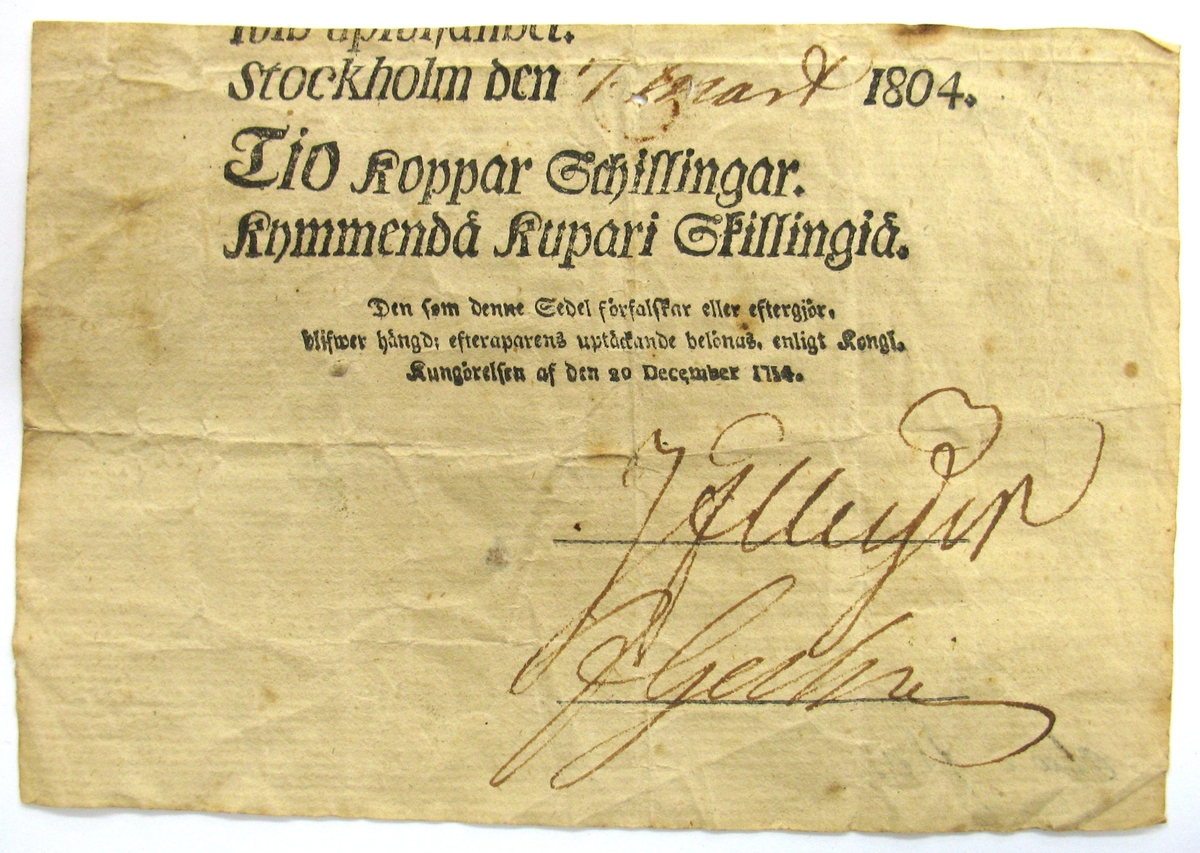 Stockholm den 7 Mart 1804.
Tio Koppar Schillingar.
Kymmendä Kupari Skillingiä.
Den som denne Sedel förfalskar eller eftergjör,
blifwer hängd; efteraparens uptäckande belönas, enligt Kongl.
Kungörelsen af den 20 December 1754.